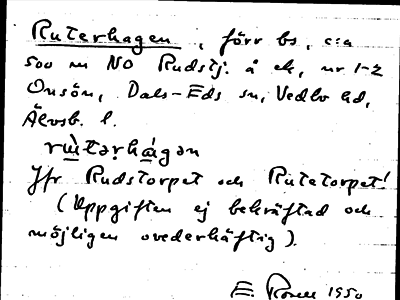 Ruterhagen, förr bs, c:a
500 m NO Rudstj. å ek, nr 1-2
Onsön, Dals-Eds sn, Vedbo hd,
Älvsb. l.
rùtərhágən
Jfr Rudstorpet och Rutetorpet!
(Uppgiften ej bekräftad och
möjligen ovederhäftig).
E. 1950